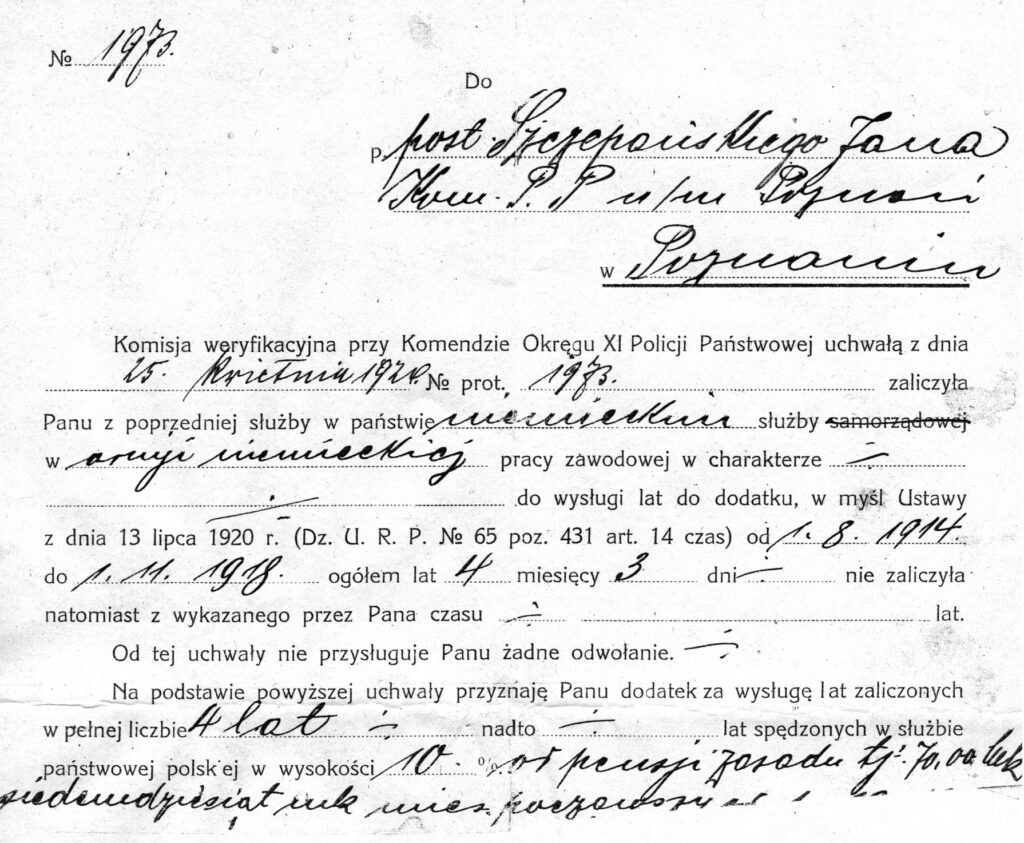 № 1973.
Do
p. post. Szczepańskiego Jana
Kom. P. P n/m Poznań
w Poznaniu
Komisja weryfikacyjna przy Komendzie Okręgu XI Policji Państwowej uchwałą z dnia
25. kwietnia 192 № prot. 1973. zaliczyła
Panu z poprzedniej służby w państwie niemieckim służby samorządowej
w armji niemieckiej pracy zawodowej w charakterze ÷
÷ do wysługi lat do dodatku, w myśl Ustawy
z dnia 13 lipca 1920 r. (Dz. U. R. P. № 65 poz. 431 art. 14 czas) od 1. 8. 1914.
do 1. 11. 1918. ogółem lat 4 miesięcy 3 dni ÷ nie zaliczyła
natomiast z wykazanego przez Pana czasu ÷ lat.
Od tej uchwały nie przysługuje Panu żadne odwołanie. ÷
Na podstawie powyższej uchwały przyznaję Panu dodatek za wysługę lat zaliczonych
w pełnej liczbie 4 lat ÷ nadto ÷ lat spędzonych w służbie
państwowej polskiej w wysokości 10 % od pensji zasadn tj. 70,00 Mk
siedemdziesiąt mk mies. począwszy